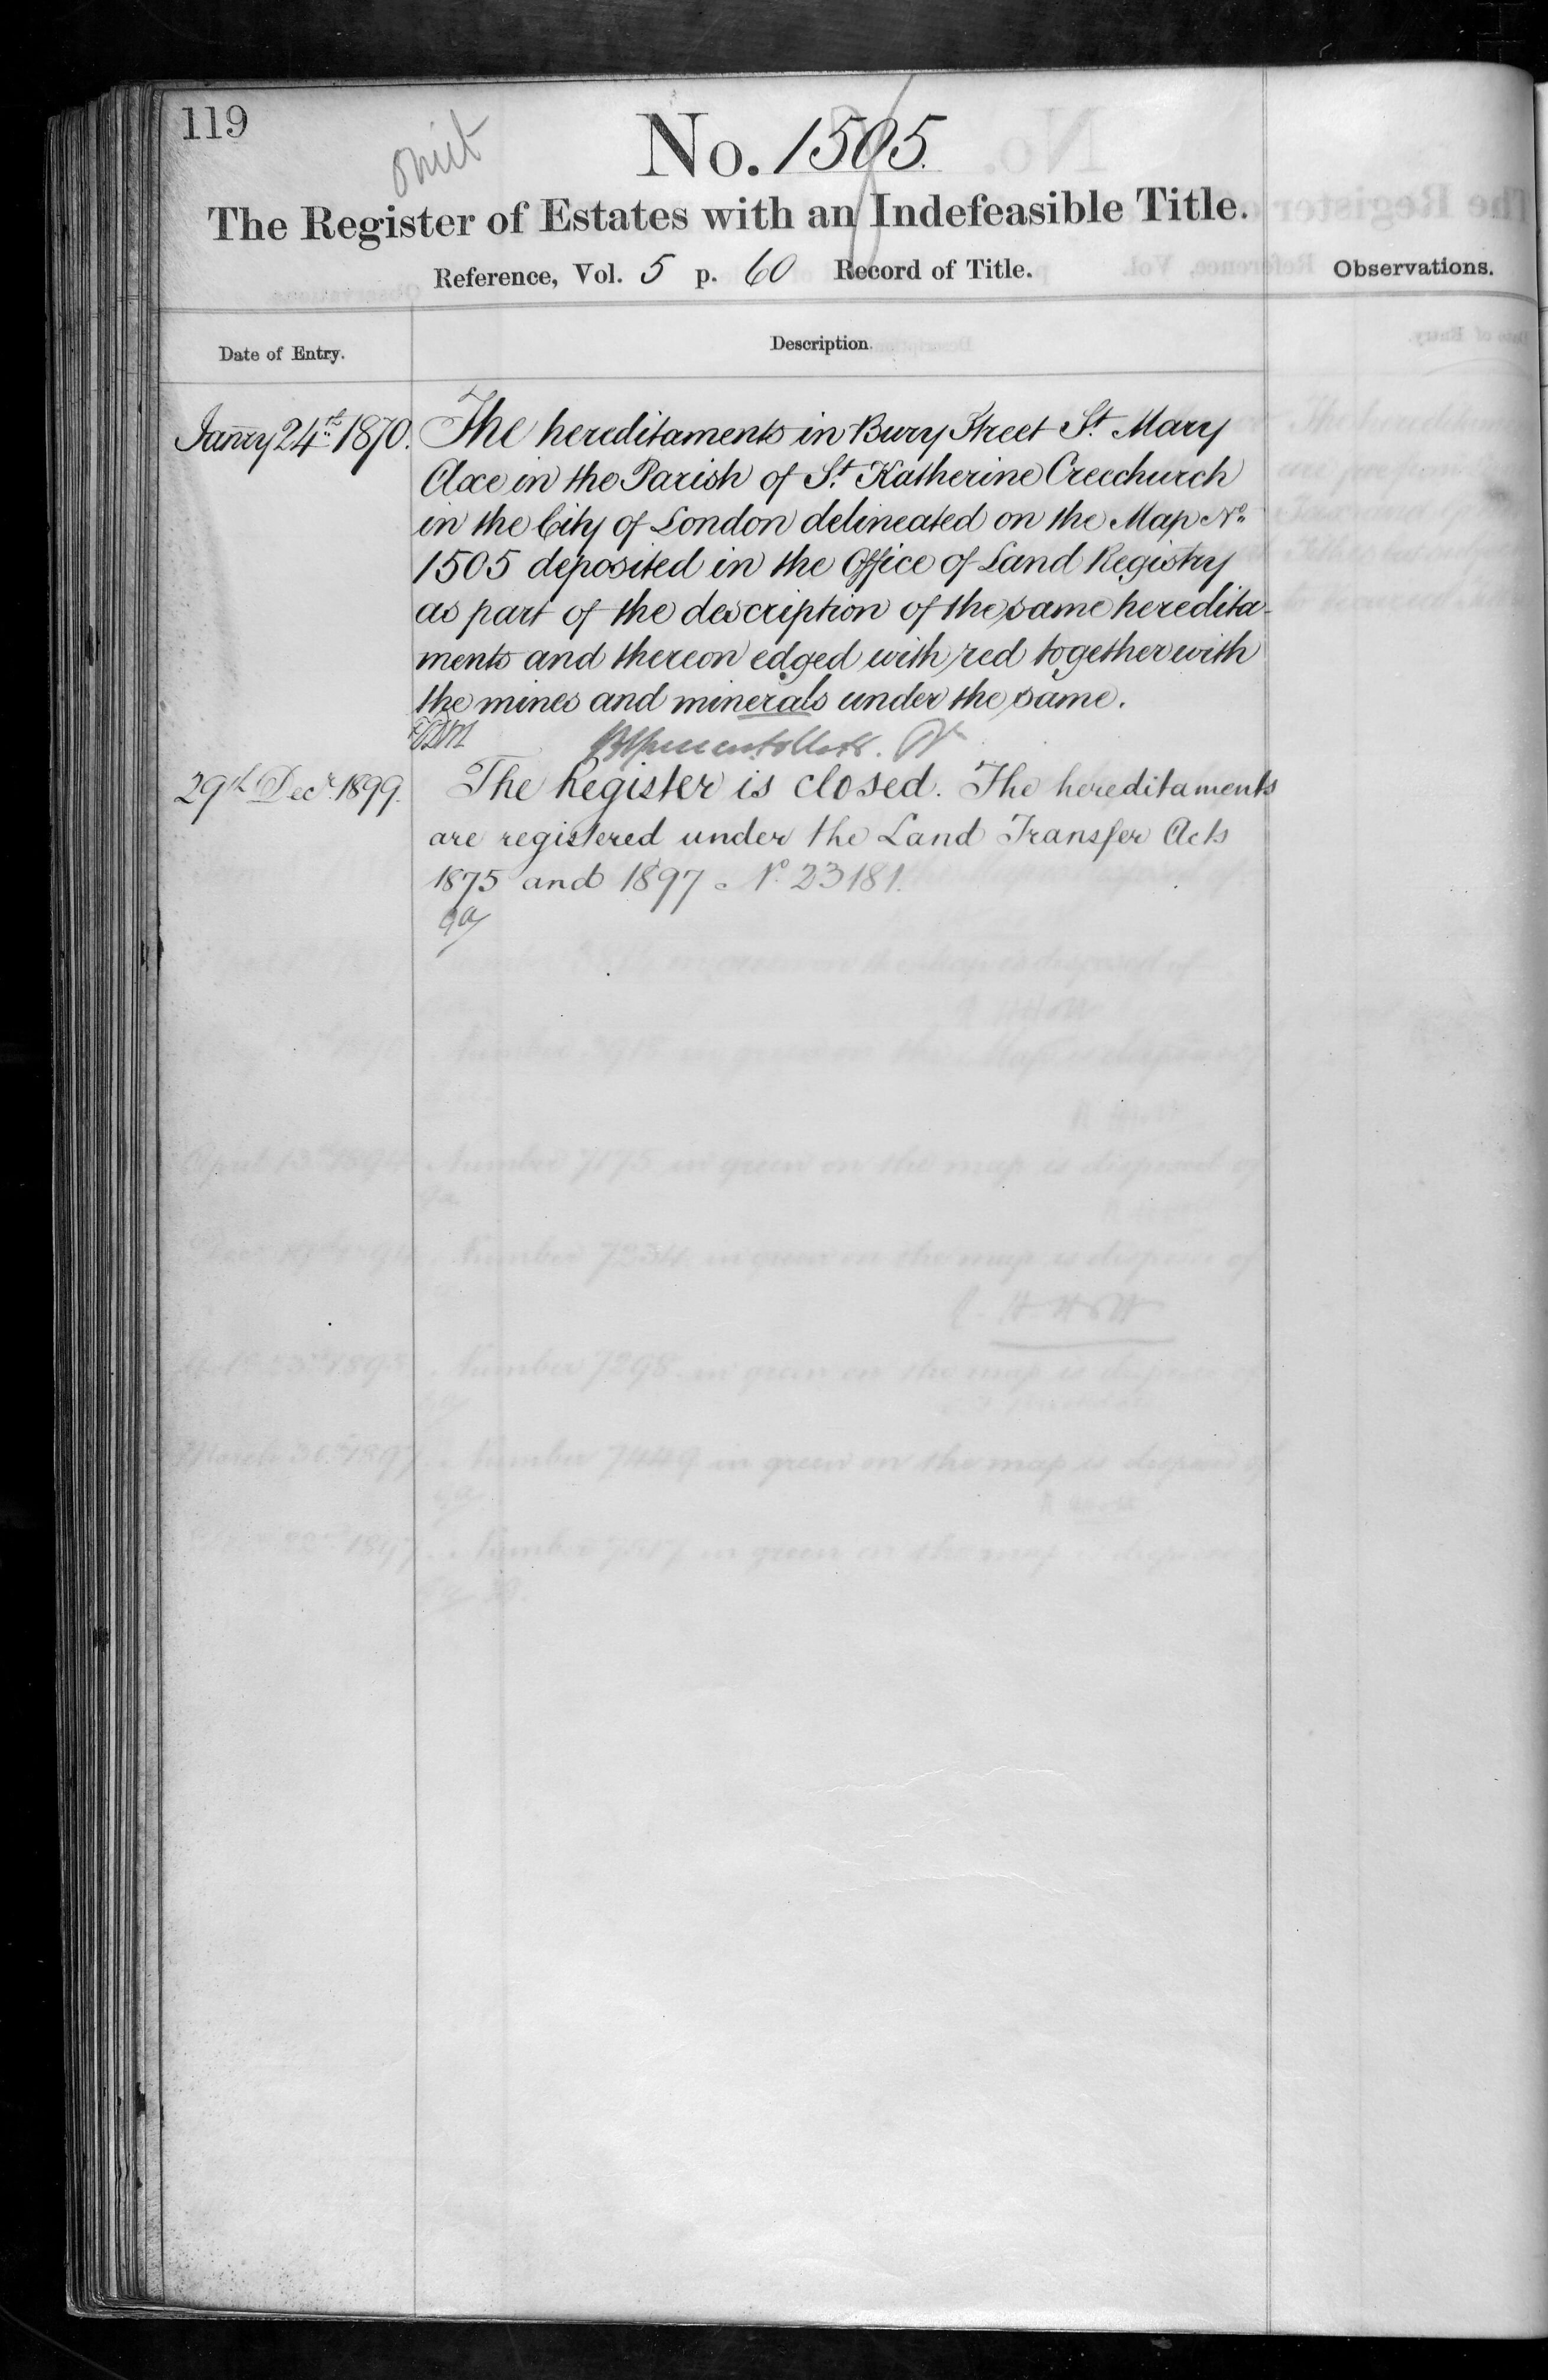 119
omit
No. 1505.
The Register of Estates with an Indefeasible Title.
Reference, Vol. 5 p. 60 Record of Title.
Observations.
Date of Entry.
Description.
Janry 24th 1870.
The hereditaments in Bury Street St. Mary
Axe in the Parish of St. Katherine Creechurch
in the City of London delineated on the Map No.
1505 deposited in the Office of Land Registry
as part of the description of the same heredita-
ments and thereon edged with red together with
the mines and minerals under the same.
29th Decr. 1899.
The Register is closed. The hereditaments
are registered under the Land Transfer Acts
1875 and 1897. No. 23181.